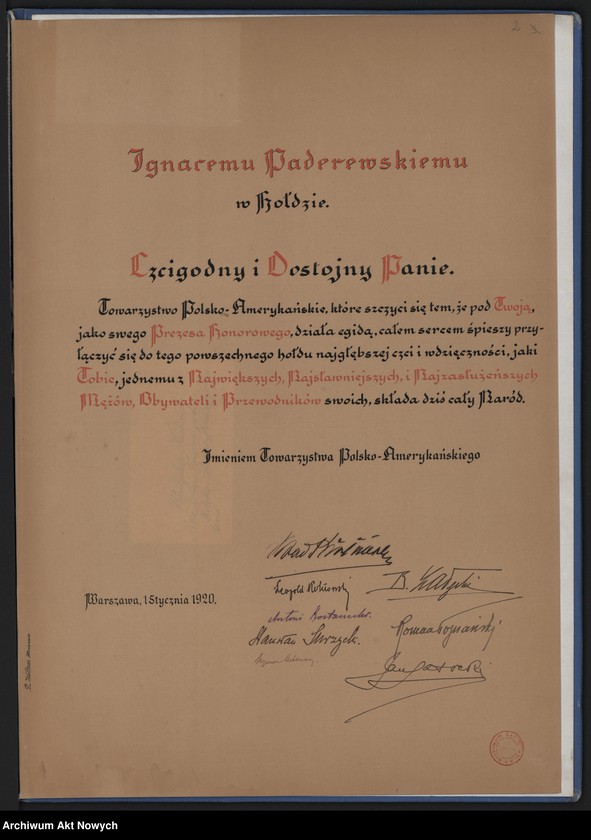 Ignacemu Paderewskiemu
w hołdzie.
Czcigodny i Dostojny Panie.
Towarzystwo Polsko-Amerykańskie, które szczyci się tem, że pod Twoją,
jako swego Prezesa Honorowego, działa egidą, całem sercem śpieszy przy-
łączyć się do tego powszechnego hołdu najgłębszej czci i wdzięczności, jaki
Tobie, jednemu z Największych, Najsławniejszych, i Najzasłużeńszych
Mężów, Obywateli i Przewodników swoich, składa dziś cały Naród.
Imieniem Towarzystwa Polsko-Amerykańskiego
Warszawa, 1 Stycznia 1920.
Leopold
Antoni
Roman Poznański
Archiwum Akt Nowych